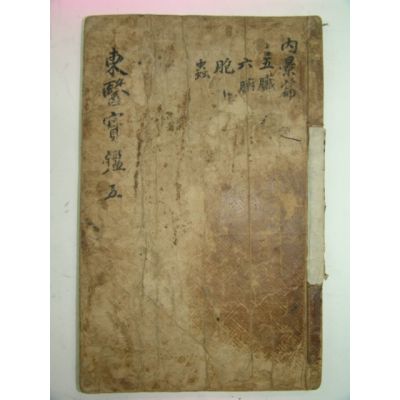 內景篇
五臟
六腑
胞
蟲
東醫寶鑑五